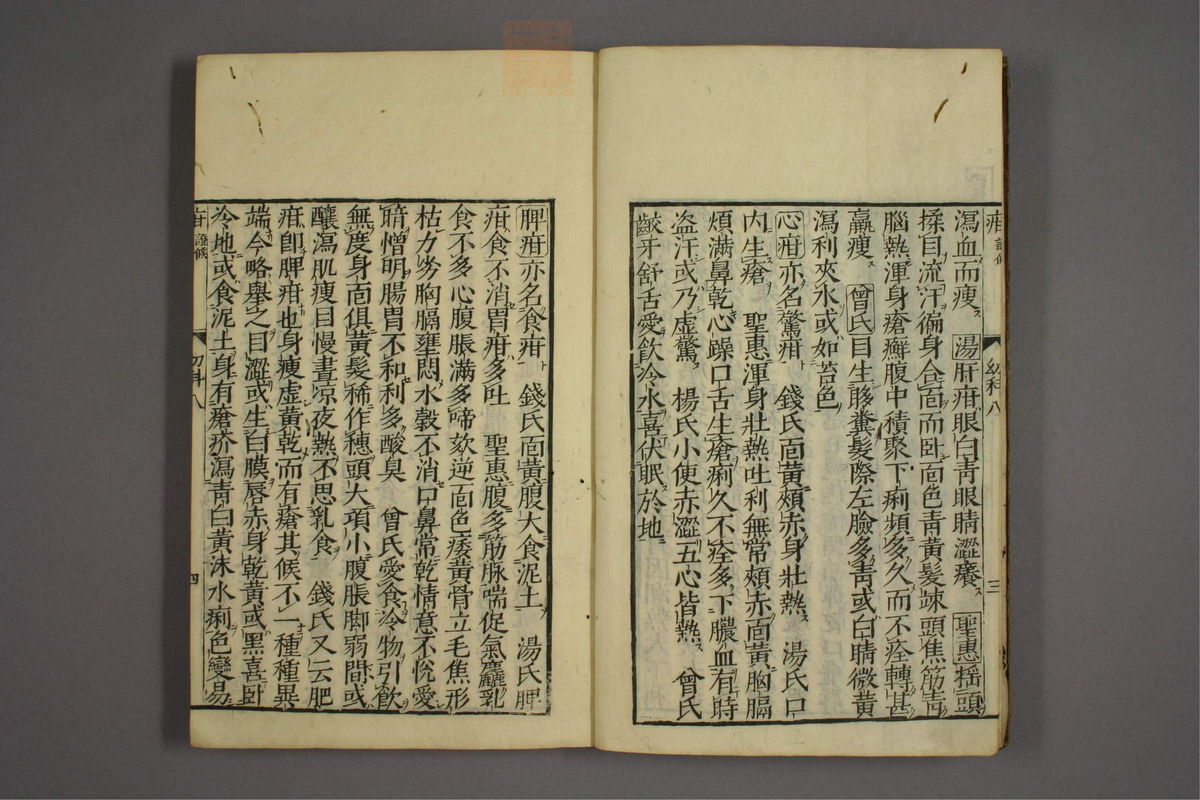 疳證候 幼科八 三
瀉血而瘦 湯肝疳眼白青眼睛澀癢 聖惠揺頭
揉目流汗徧身合面而卧面色青黃髮竦頭焦筋青
腦熱渾身瘡癬腹中積聚下痢頻多久而不痊轉甚
羸瘦 曾氏目生眵糞髮際左臉多青或白睛微黃
瀉利夾水或如苔色
心疳亦名驚疳 錢氏面黃頰赤身壯熱 湯氏口
內生瘡 聖惠渾身壯熱吐利無常頰赤面黃胸膈
煩滿鼻乾心躁口舌生瘡痢久不痊多下膿血有時
盗汗或乃虛驚 楊氏小便赤澀五心皆熱 曾氏
齩牙舒舌愛飲冷水喜伏眠於地
脾疳亦名食疳 錢氏面黃腹大食泥土 湯氏脾
疳食不消胃疳多吐 聖惠腹多筋脉喘促氣麤乳
食不多心腹脹滿多啼欬逆面色痿黃骨立毛焦形
枯力劣胸膈壅悶水穀不消口鼻常乾情意不悅愛
暗憎明腸胃不和利多酸臭 曾氏愛食冷物引飲
無度身面俱黃髮稀作穗頭大項小腹脹脚弱間或
釀瀉肌瘦目慢晝凉夜熱不思乳食 錢氏又云肥
疳卽脾疳也身瘦虛黃乾而有瘡其候不一種種異
端今略舉之目澀或生白膜唇赤身乾黃或黑喜卧
冷地或食泥土身有瘡疥瀉青白黃沫水痢色變易
疳證候 幼科八 四